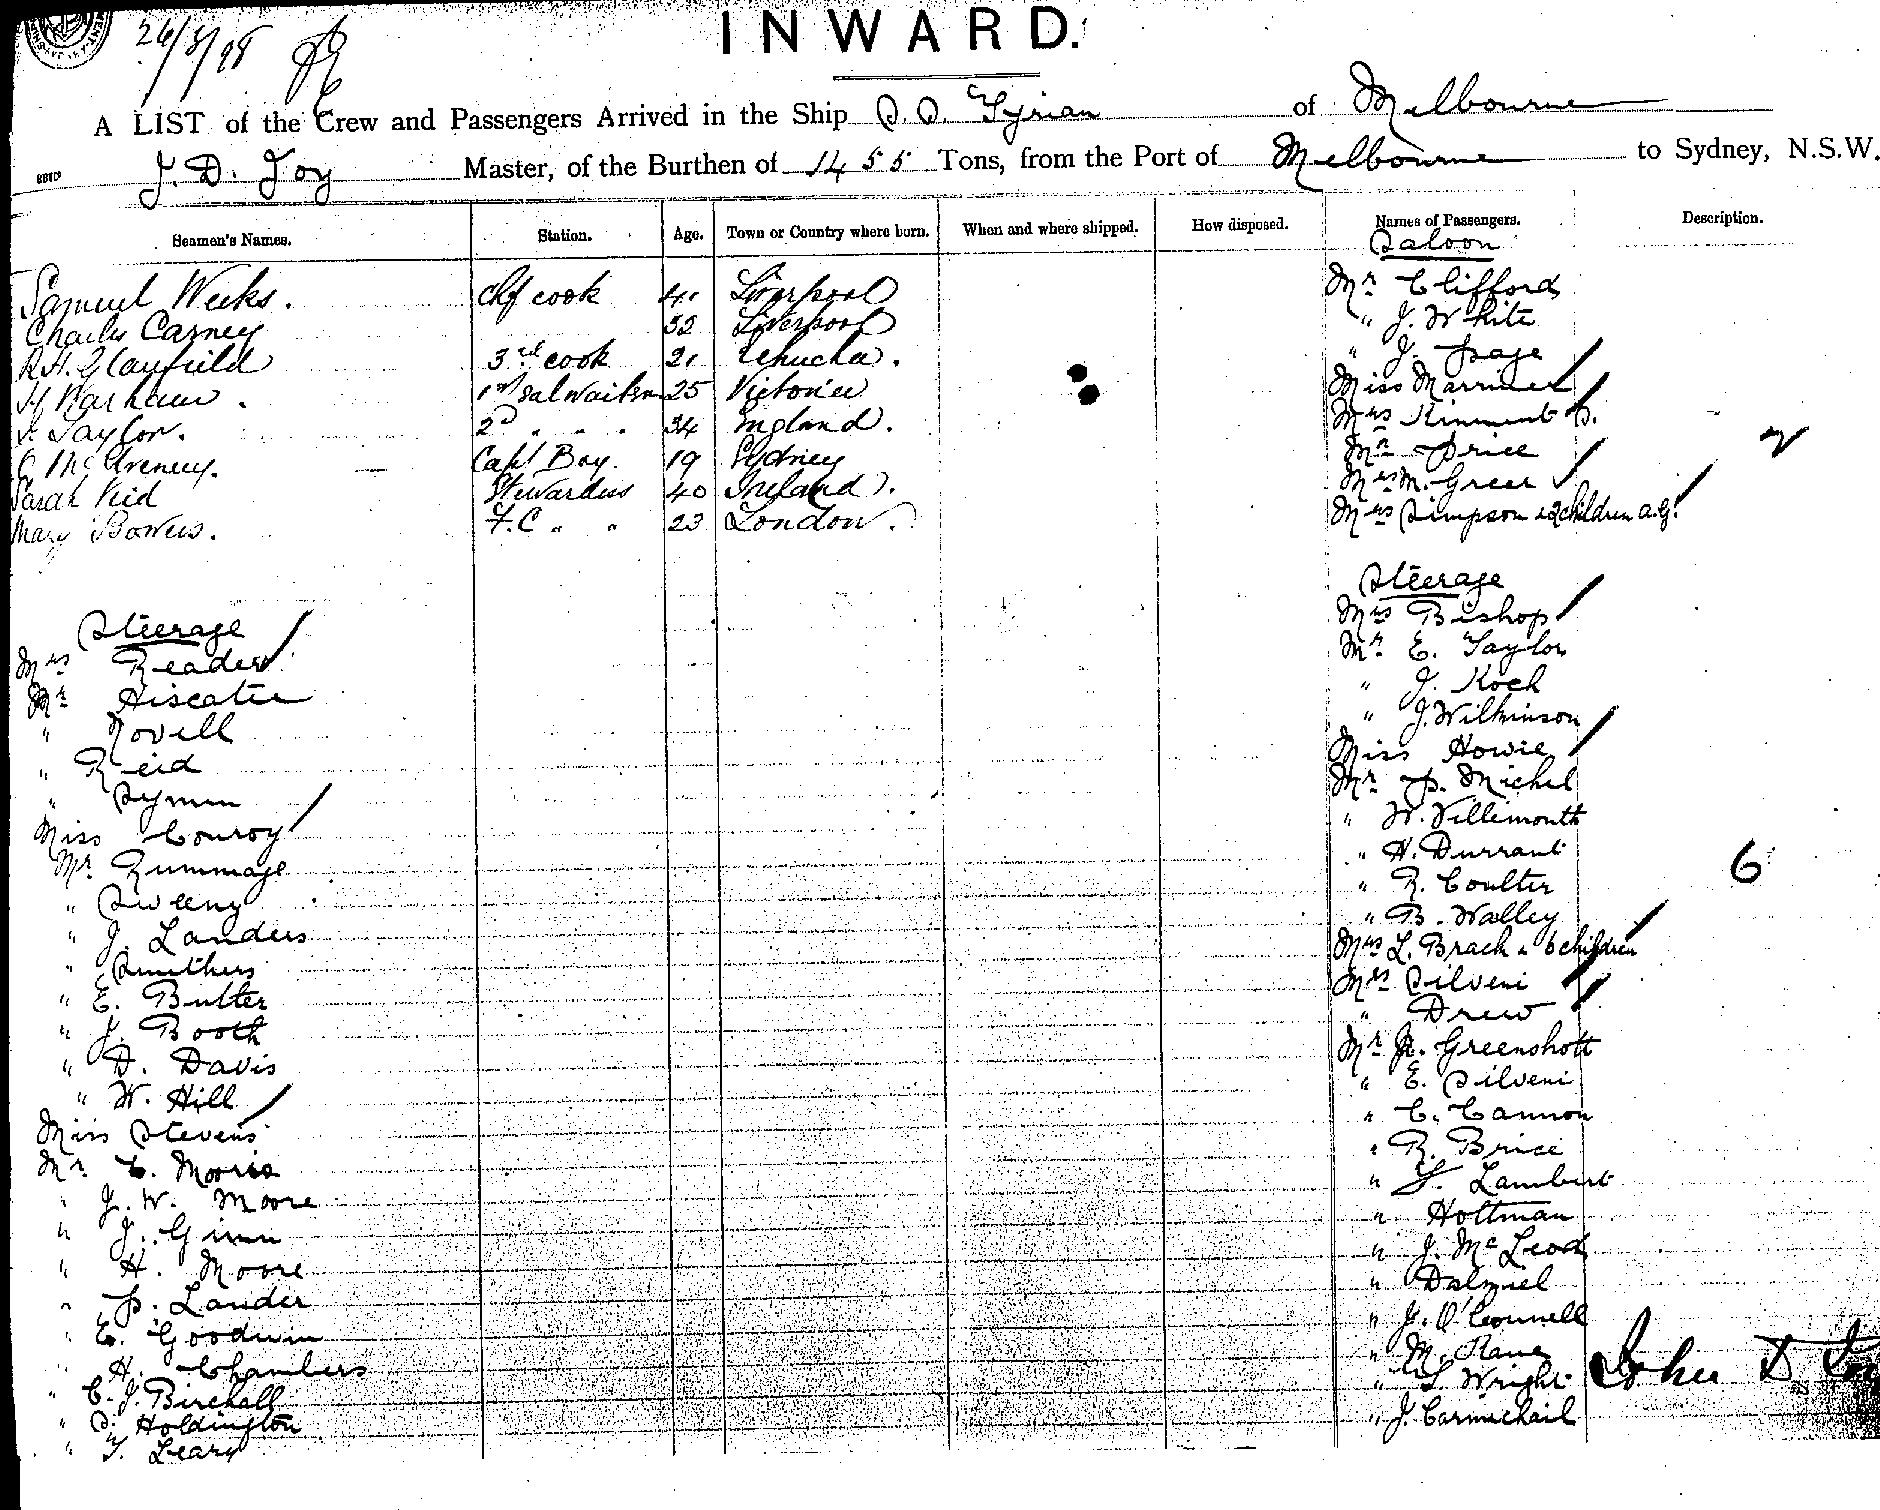 26/8/98
INWARD.
A LIST of the Crew and Passengers Arrived in the Ship S.S. Tyrian of Melbourne
J. D. Joy Master, of the Burthen of 1455 Tons, from the Port of Melbourne to Sydney, N.S.W.
Seamen's Names. Station. Age. Town or Country where born. When and where shipped. How disposed. Names of Passengers. Description.
Samuel Weeks. chf cook 41 Liverpool
Charles Carney 32 Liverpool
R.H. Glanfield 3rd cook 21 Echucha.
H Warham. 1st Sal Waiter 25 Victoria
Taylor. 2d " " " 34 England.
Capt Boy. 19 Sydney
Sarah Reid Stewardess 40 Ireland.
Mary Bowers. F.C " " 23 London.
Steerage
Mrs Reader
Mr Hiscatee
" Novell
" Reid
" Symm
Miss Conroy
Mr Rummage
" Sweeny
" J. Landers
" Smithers
" E. Butter
" J. Booth
" D. Davis
" W. Hill
Miss Stevens
Mr C. Morris
" J. W. Moore
" J. Ginn
" H. Moore
" P. Lander
" E. Goodwin
" H. Chambers
" C. J. Birchall
" S. Holdington
" T. Leary
Saloon
Mr Clifford
" J. White
" J. Page
Miss Marriner
Mrs
Mr Price
Mrs M. Greer
Mrs Simpson & 2 children a.g.
7
Steerage
Mrs Bishop
Mr E. Taylor
" J. Koch
" J. Wilkinson
Miss Howie
Mr P. Michel
" W. Villimonth
" H. Durrant
" R. Coulter
6
" B. Walley
Mrs L. Brach " 6 children
Mrs Silveni
" Drew
Mr R. Greenshott
" E. Silveni
" C. Cannon
" R. Brice
" S. Lambert
" Hottman
" J. McLeod
" Dalziel
" J. O'Connell
" M. Kane
" L Wright
" J. Carmichail
John D Joy